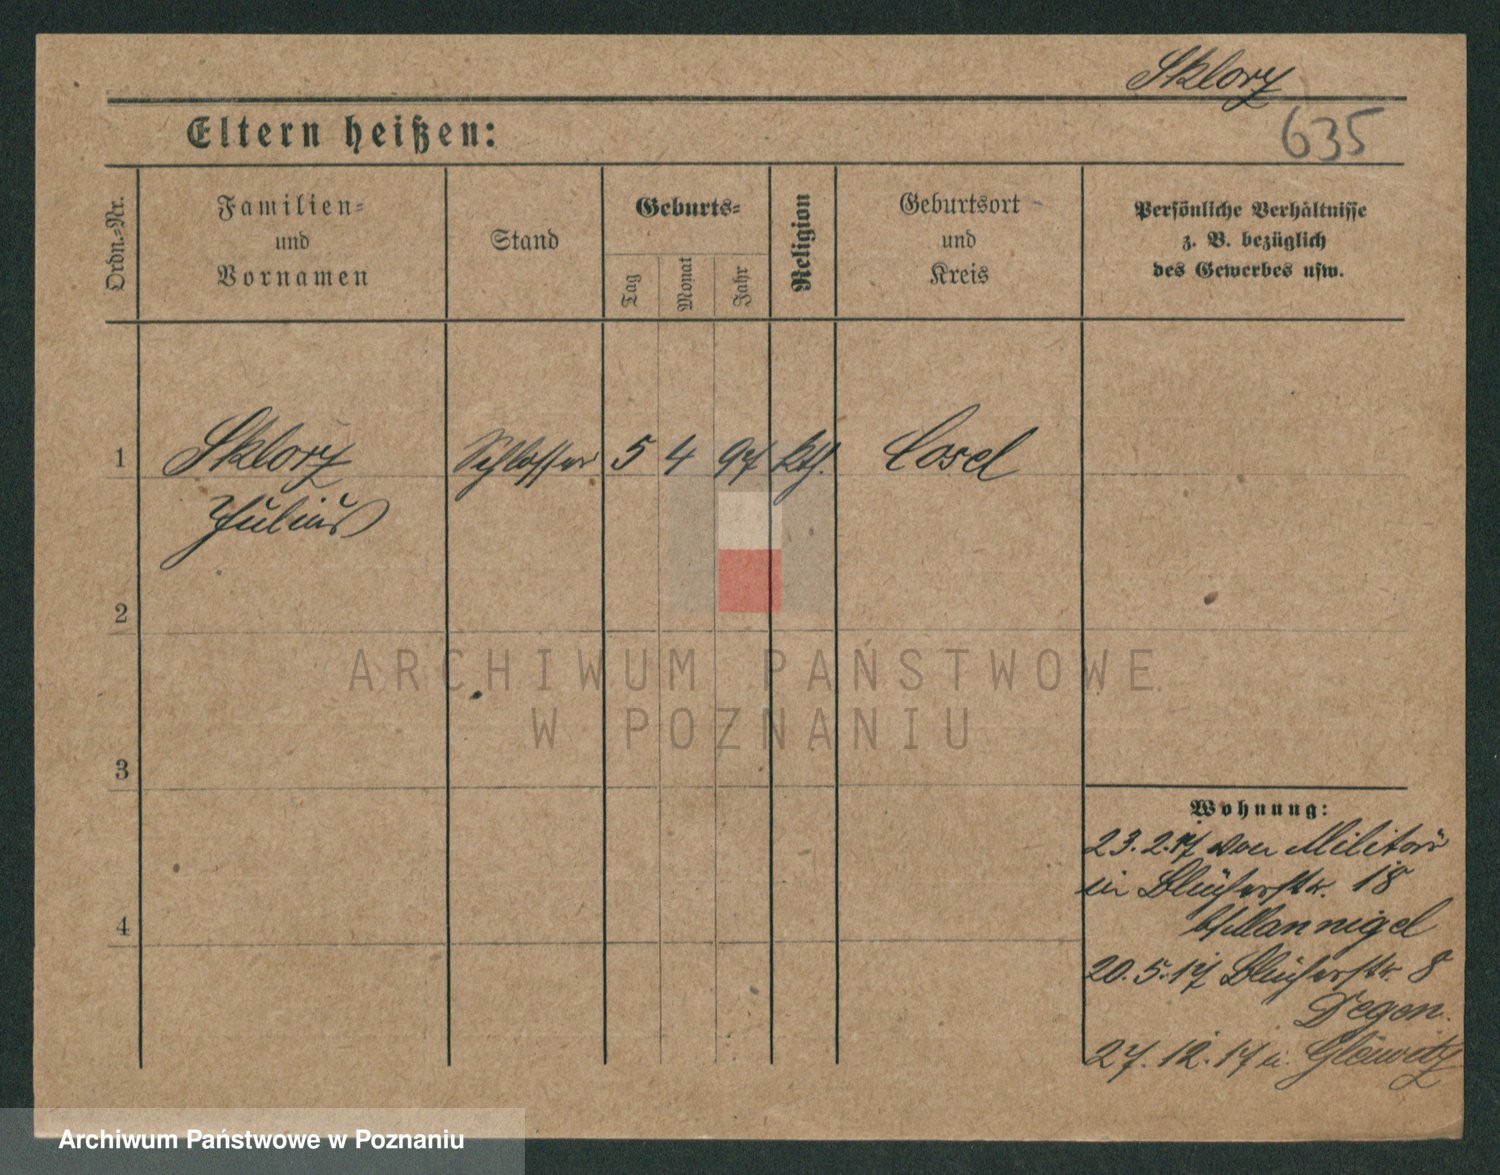 Sklorz
Eltern heißen:
635
Ordn.-Nr.
Familien-
und
Vornamen
Stand
Geburts-
Tag
Monat
Jahr
Religion
Geburtsort
und
Kreis
Persönliche Verhältnisse
z. B. bezüglich
des Gewerbes usw.
1
Sklorz
Julius
Schlosser
5
4
97
kth.
Cosel
2
3
4
Wohnung:
23. 2. 17 vom Militär
in Blücherstr. 18
b/ Mannigel
20. 5. 17 Blücherstr. 8
Degen.
27. 12. 17 n. Gleiwitz
ARCHIWUM PAŃSTWOWE
W POZNANIU
Archiwum Państwowe w Poznaniu